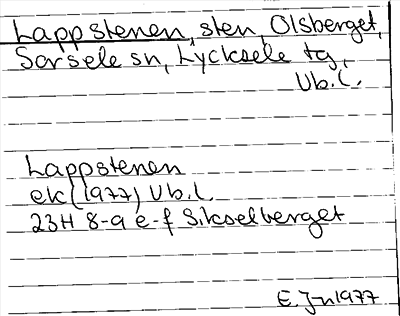 Lappstenen, sten, Olsberget,
Sorsele sn, Lycksele tg,
Vb.l.
Lappstenen
ek (1977) Vb.l.
23H 8-9 e-f Sikselberget
E. Jn 1977